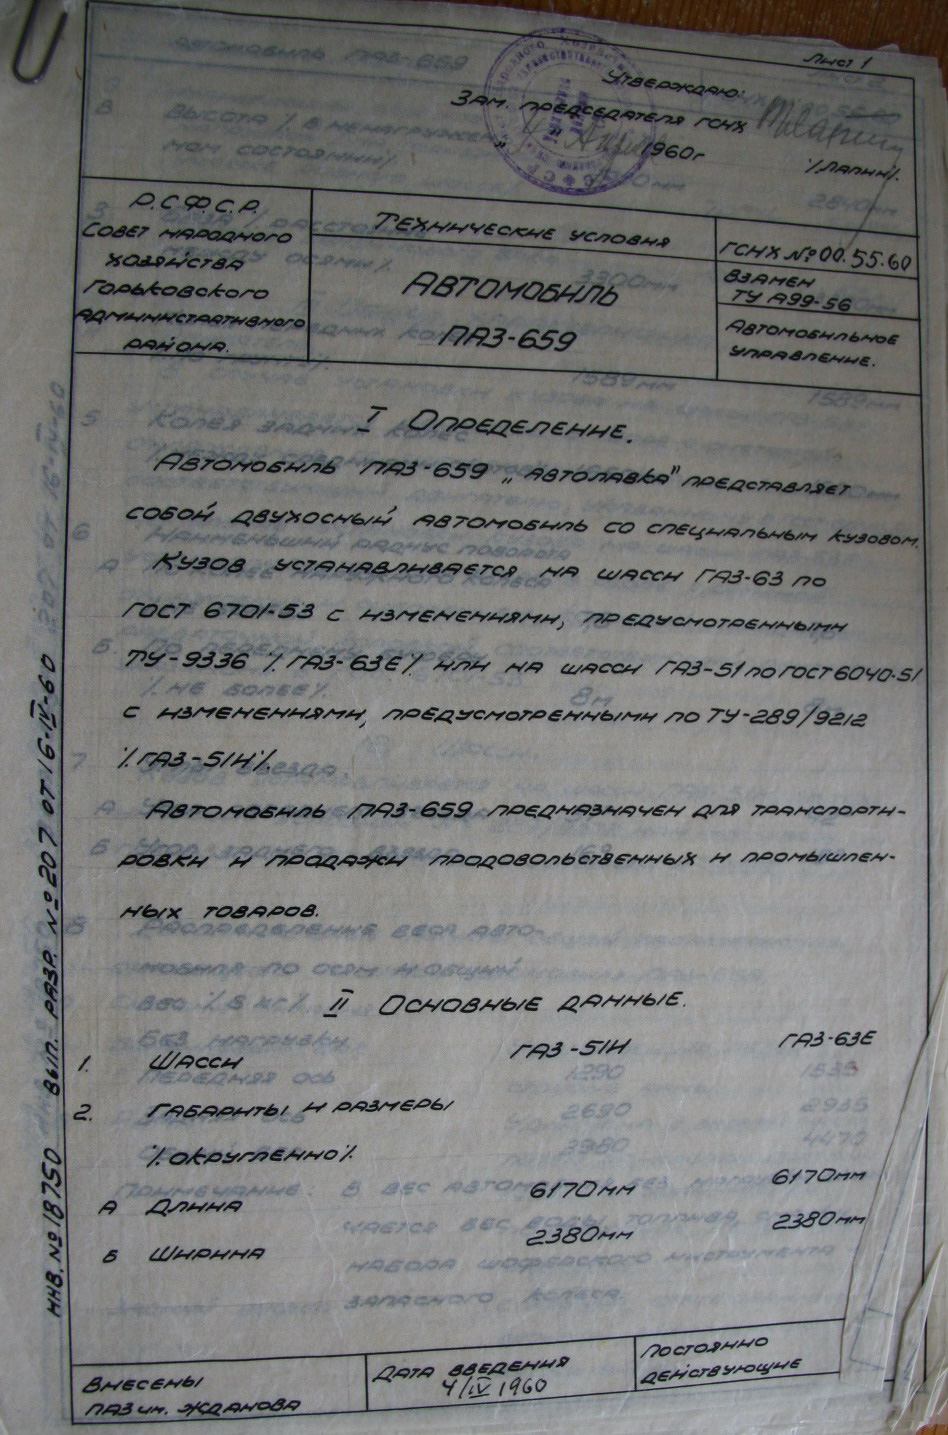 Лист 1
Утверждаю:
Зам. председателя ГСНХ
1960г
%Лапин%.
Р.С.Ф.С.Р.
Совет народного
хозяйства
Горьковского
административного
района.
Технические условия
Автомобиль
ПАЗ-659
ГСНХ №00.55.60
Взамен
ТУ А99-56
Автомобильное
управление.
I Определение.
Автомобиль ПАЗ-659 „Автолавка" представляет
собой двухосный автомобиль со специальным кузовом.
Кузов устанавливается на шасси ГАЗ-63 по
ГОСТ 6701-53 с изменениями, предусмотренными
ТУ-9336 %ГАЗ-63Е% или на шасси ГАЗ-51 по ГОСТ 6040-51
с изменениями, предусмотренными по ТУ-289/9212
%ГАЗ-51И%.
Автомобиль ПАЗ-659 предназначен для транспорти-
ровки и продажи продовольственных и промышлен-
ных товаров.
II Основные данные.
1. Шасси ГАЗ-51И ГАЗ-63Е
2. Габариты и размеры
%округленно%
А Длина 6170мм 6170мм
Б Ширина 2380мм 2380мм
Внесены
ПАЗ им. Жданова
Дата введения
4/IV 1960
Постоянно
действующие
Инв. №18750 Вып. разр. №207 от 16-IV-60